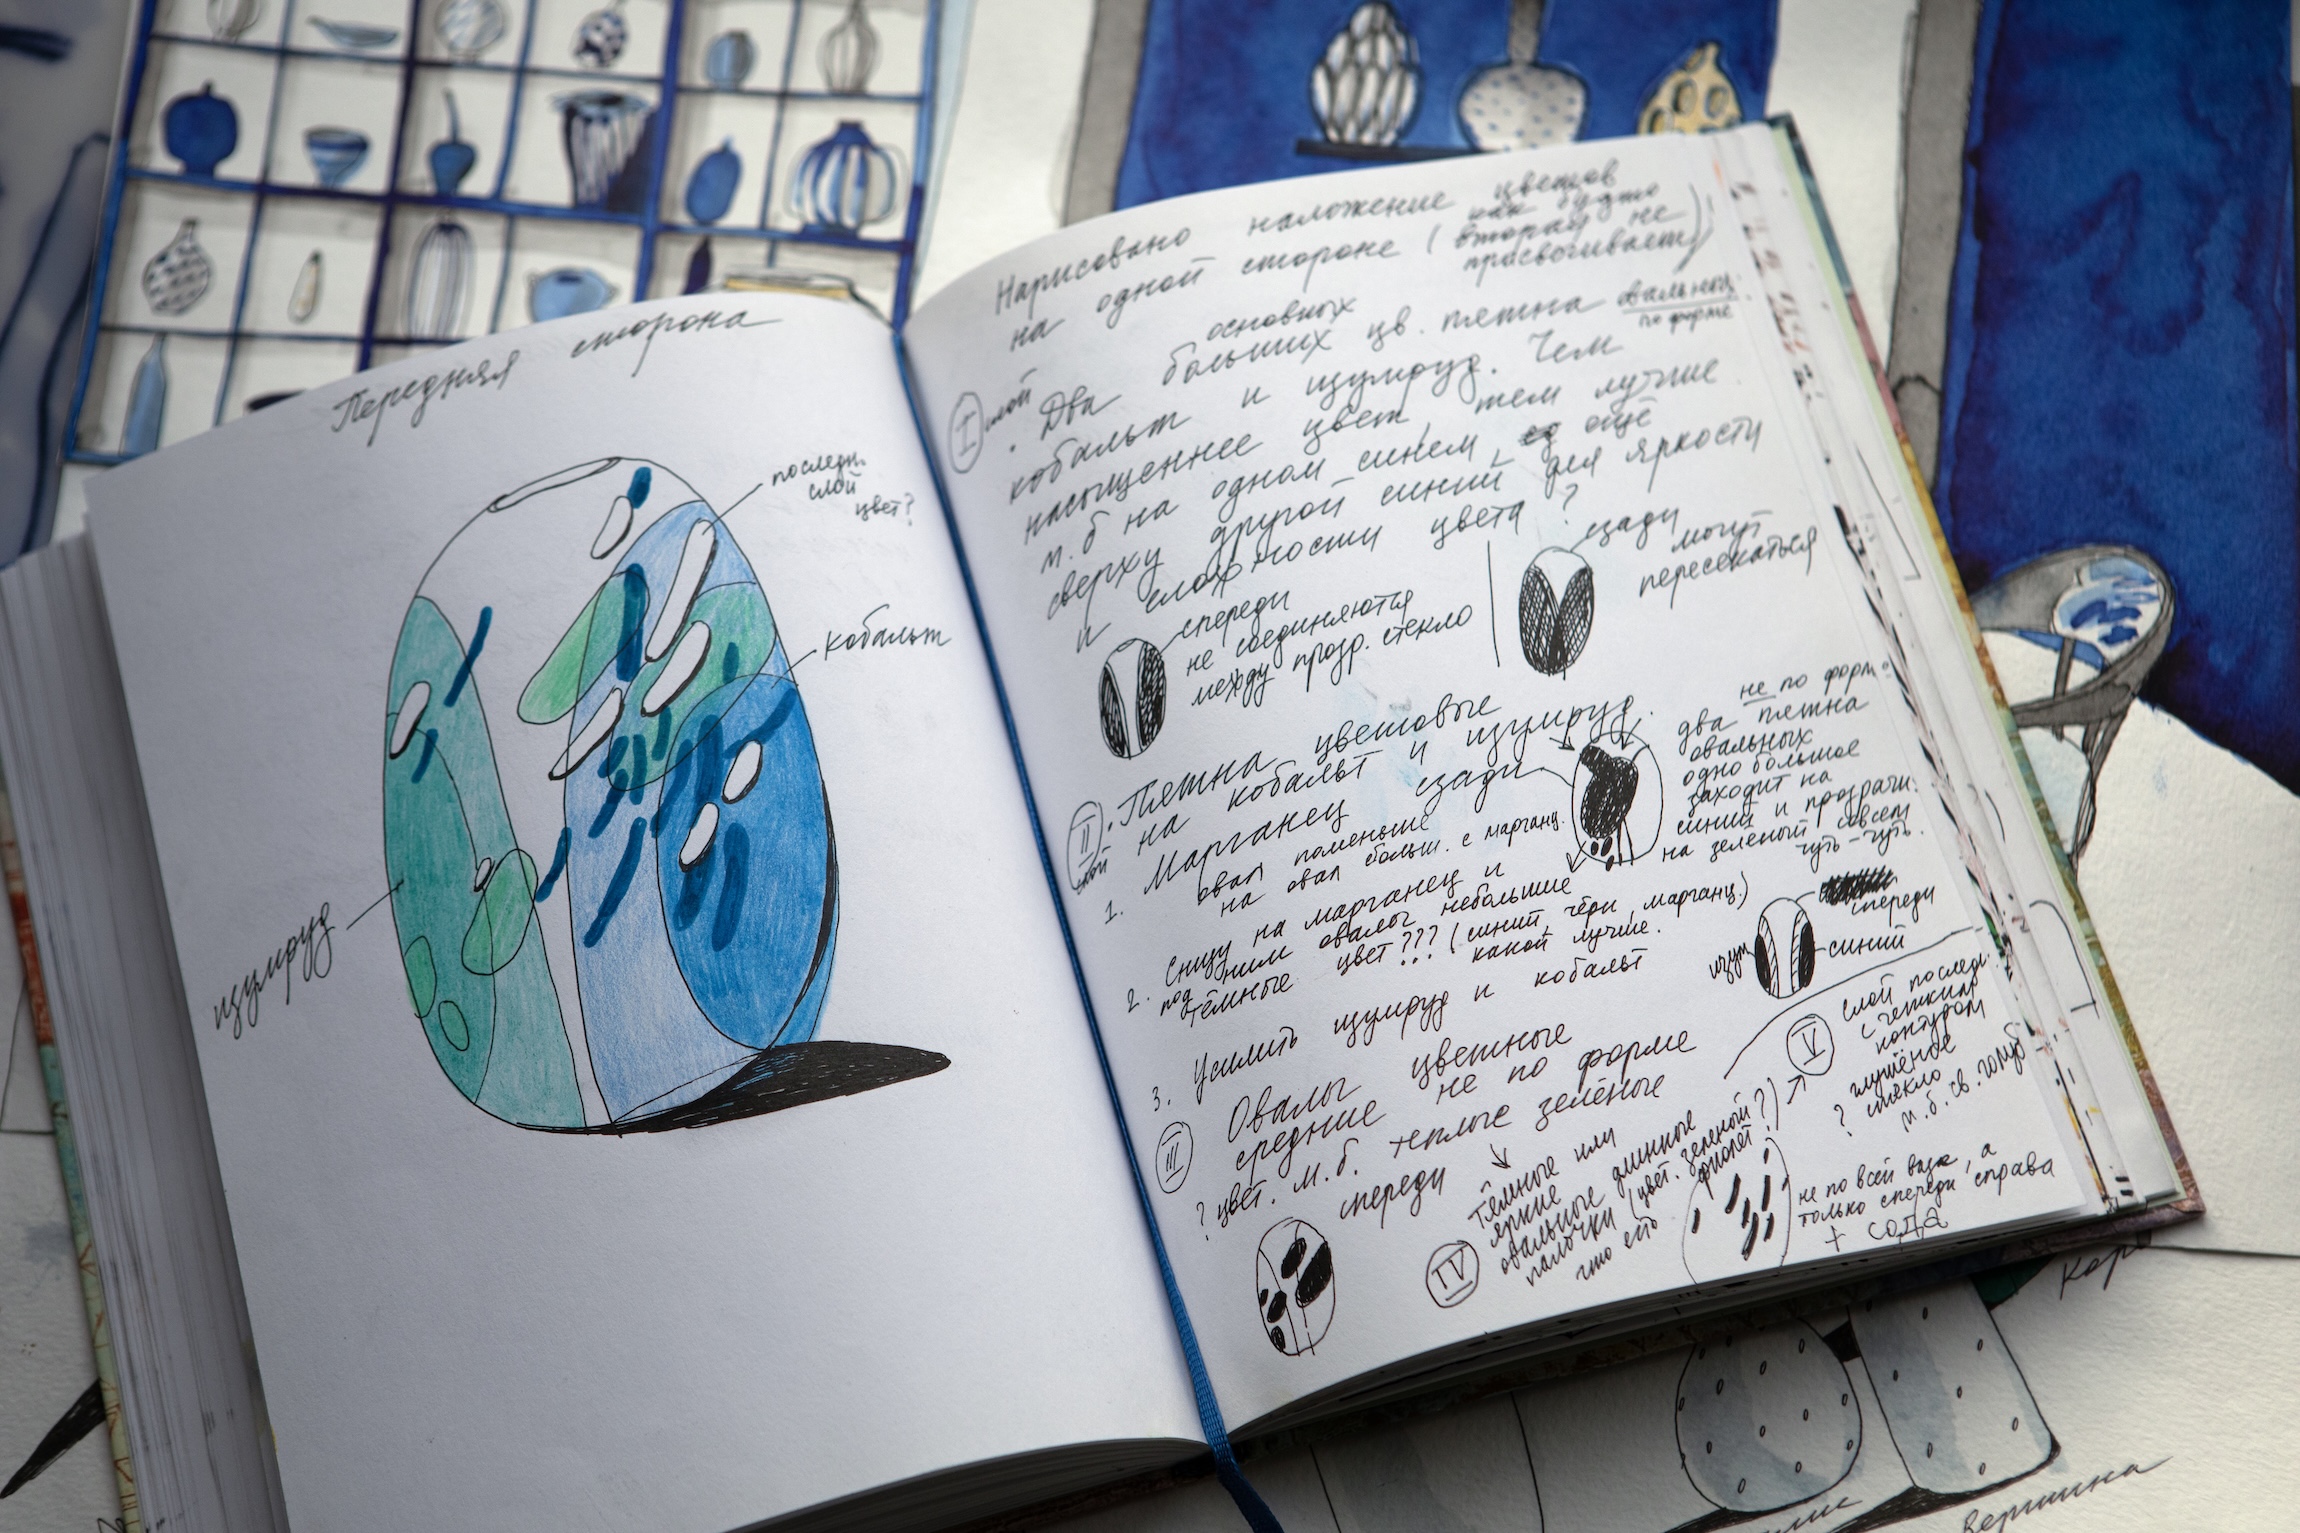 Передняя сторона
последн.
слой
цвет?
кобальт
изумруд
Нарисовано наложение цветов
на одной стороне (как будто
вторая не
просвечивает)
I слой
основных
. Два больших цв. пятна овальных
по форме
кобальт и изумруд. Чем
насыщеннее цвет, тем лучше.
м.б на одном синем, ещё
сверху другой синий для яркости
и сложности цвета?
спереди
не соединяются
между прозр. стекло
сзади
могут
пересекаться
II слой
. Пятна цветовые
на кобальт и изумруд.
Марганец сзади
1. овал поменьше
на овал больш. с марганц.
не по форм.
два пятна
овальных
одно большое
заходит на
синий и прозрачн.
на зеленый совсем
чуть-чуть.
2. Снизу на марганец и
под ним овалы небольшие
тёмные цвет??? (синий, черн, марганц.)
какой лучше.
3. Усилить изумруд и кобальт
спереди
изум
синий
III
Овалы цветные
средние не по форме
? цвет. м.б. теплые зелёные
спереди
IV
Тёмные или
яркие
овальные длинные
палочки (цвет. зеленый?)
фиолет?
что есть
не по всей вазе, а
только спереди, справа
+ сода
V
слой последн.
с четким
контуром
? глушёное
стекло
м.б. св. голуб
Вершина